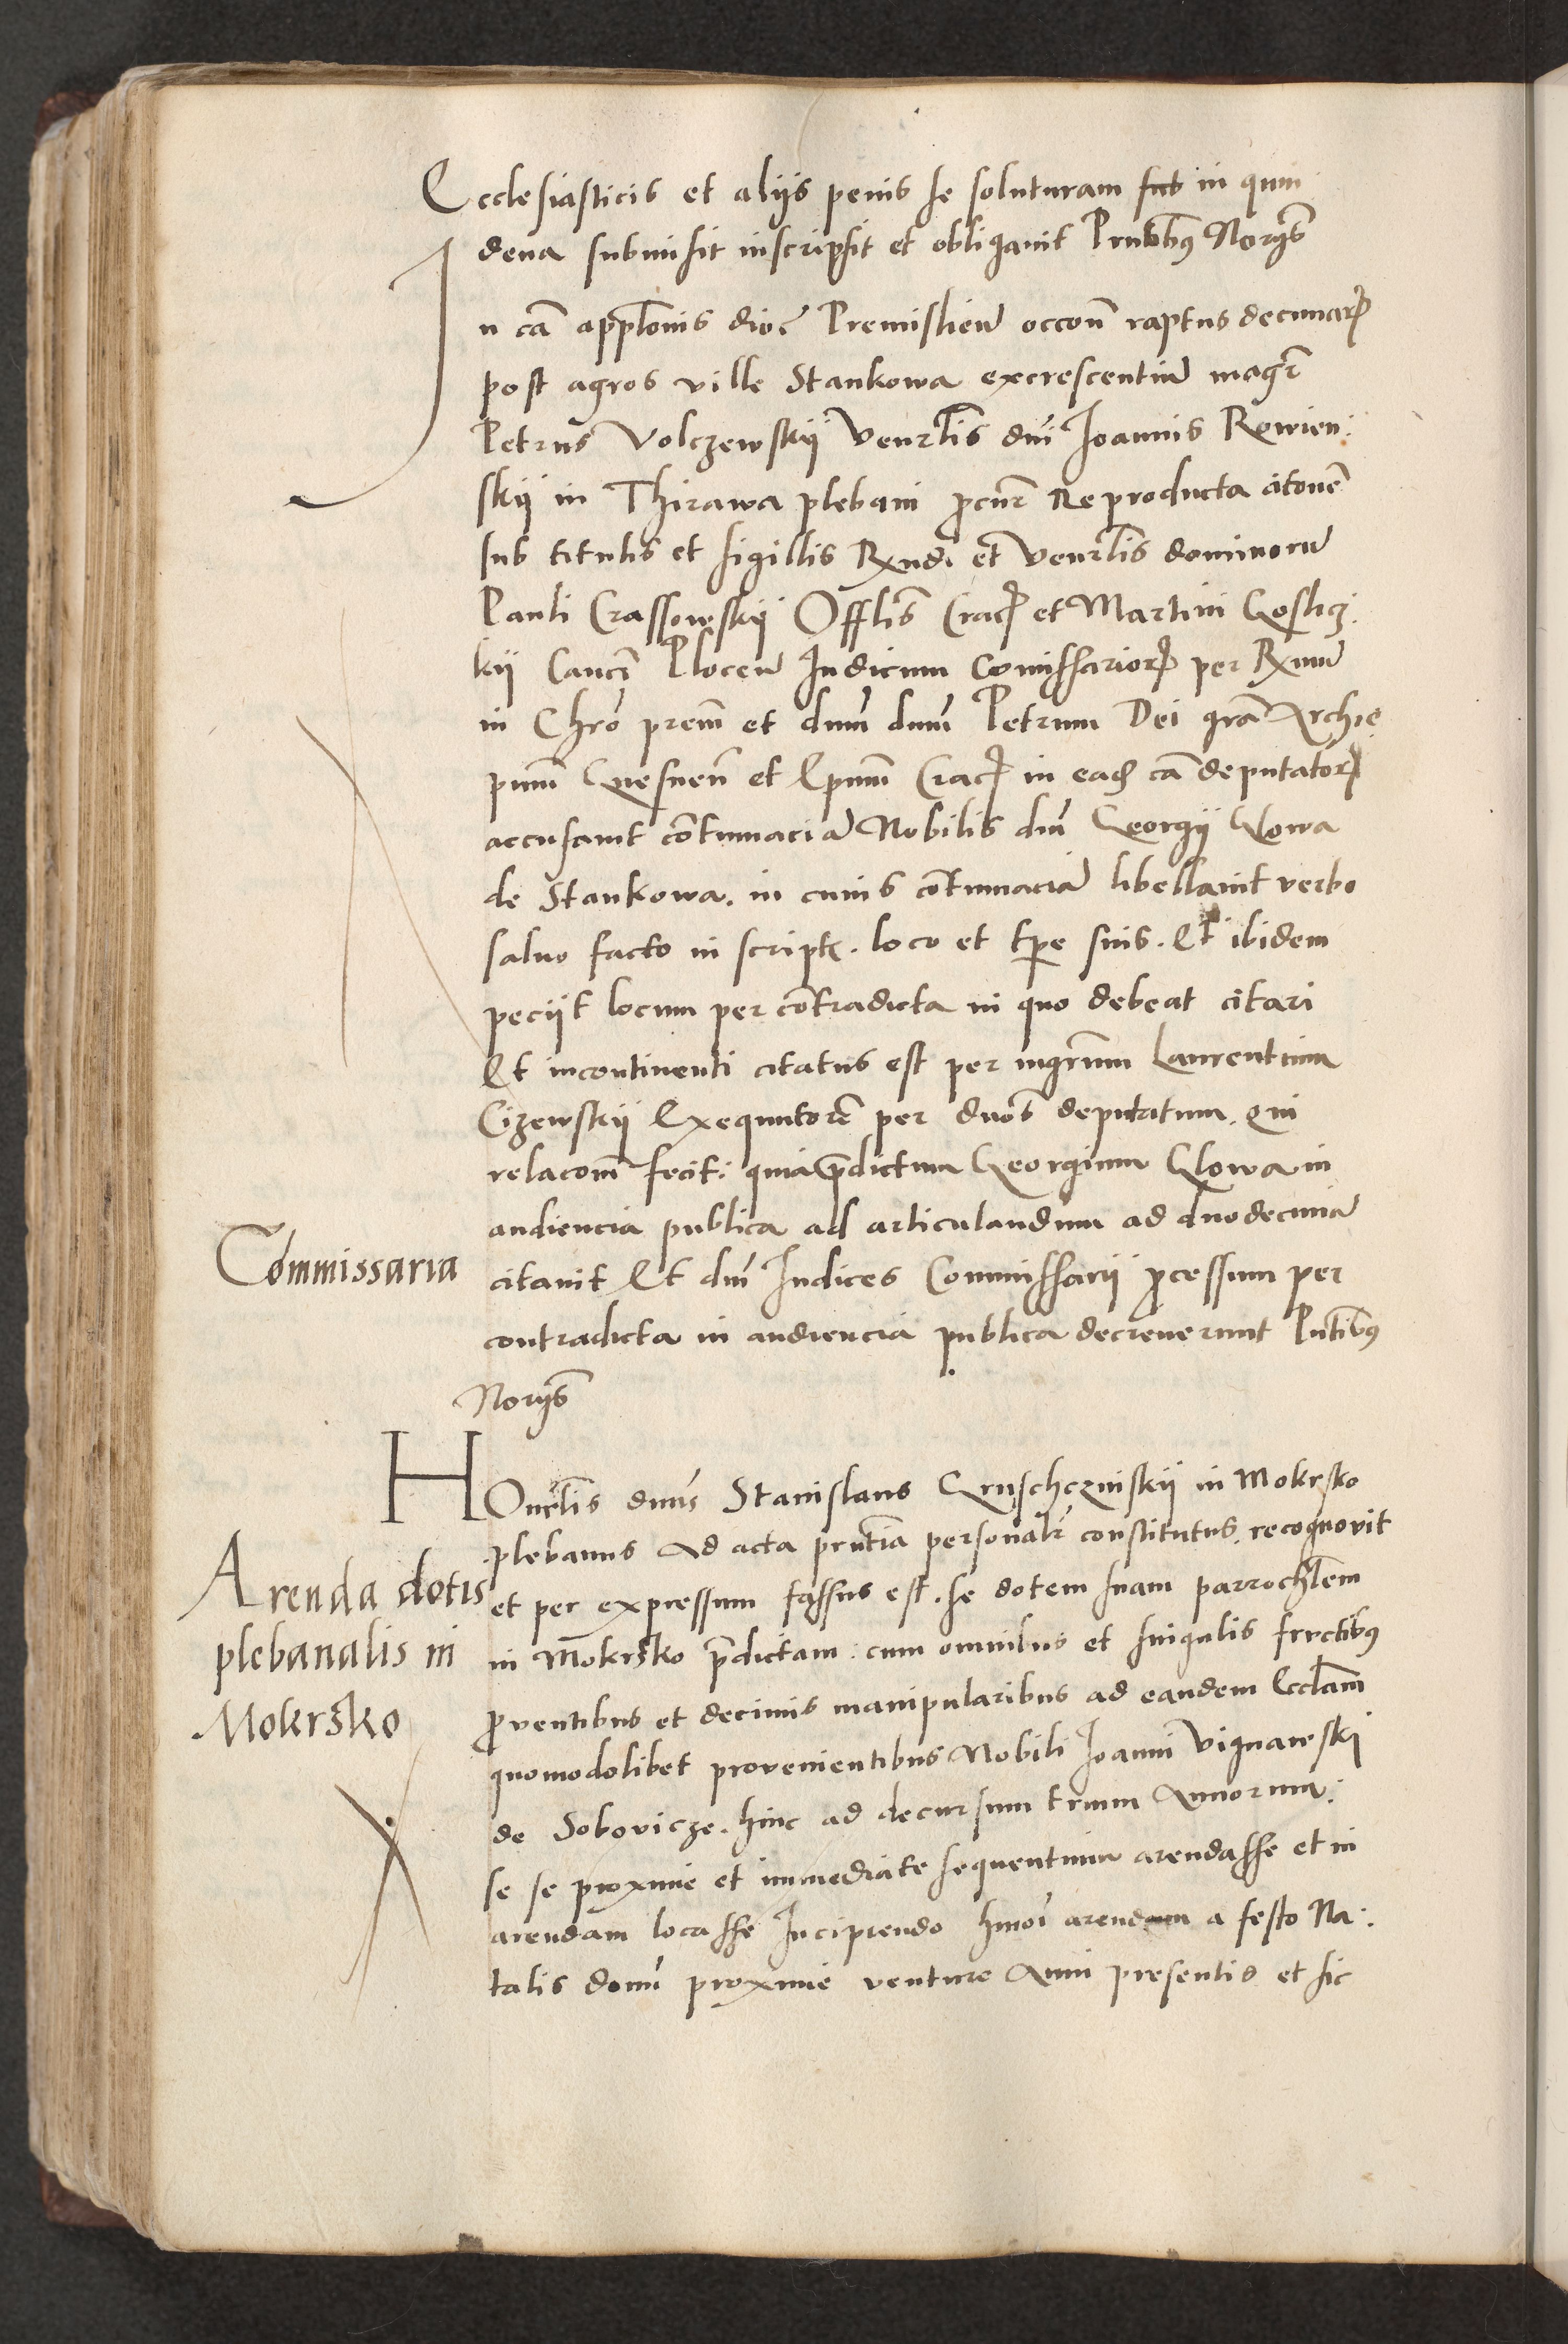 Ecclesiasticis et aliis penis se soluturam sub in quin
dena submisit inscripsit et obligavit Pntibus Norijs
In cã appłonis dioc Premislien occoñ raptus decimar
post agros ville Stankowa excrescentiũ magr
Petrus Volczewskij Venrlis dni Joannis Rowien:
skij in Thirawa plebani pcur Reproducta citone
sub titulis et sigillis Rxndi et Venrlis dominorũ
Pauli Crassowskij Offlis Crac et Martini Goslicz:
kij Canci Plocen Judicum Comissarior per Rxmũ
in Chro prem et dnum dnum Petrum Dei gra Archie
pum Gnesnen et Epum Crac in ead cã deputator
accusavit contumaciã Nobilis dni Georgij Glowa
de Stankowa. in cuius contumaciã libellavit verbo
salvo facto in script. loco et tpe suis. Et ibidem
peciit locum per contradicta in quo debeat citari
Et incontinenti citatus est per mgrum Laurentium
Cizewskij Exequutore per dnos deputatum. qui
relacom fecit: quia pdictum Georgium Glowa in
audiencia publica ad articulandum ad duodecimã
Commissaria
citavit Et dni Judices Commissarij pcessum per
contradicta in audiencia publica decreverunt Pntibus
Norijs
HOnrlis dnus Stanislaus Gruschczinskij in Mokrsko
plebanus ad acta prntia personalr constitutus. recognovit
Arenda dotis
plebanalis in
Mokrsko
et per expressum fassus est. se dotem suam parrochlem
in Mokrsko pdictam. cum omnibus et singulis fructibus
pventibus et decimis manipularibus ad eandem Eccłam
quomodolibet provenientibus Nobili Joanni Vignawski
de Sobovicze. hinc ad decursum trium Annorum:
se se proxime et immediate sequentium arendasse et in
arendam locasse Incipiendo hmoi arendam a festo Na:
talis domi proxime venture Anni presentis et sic